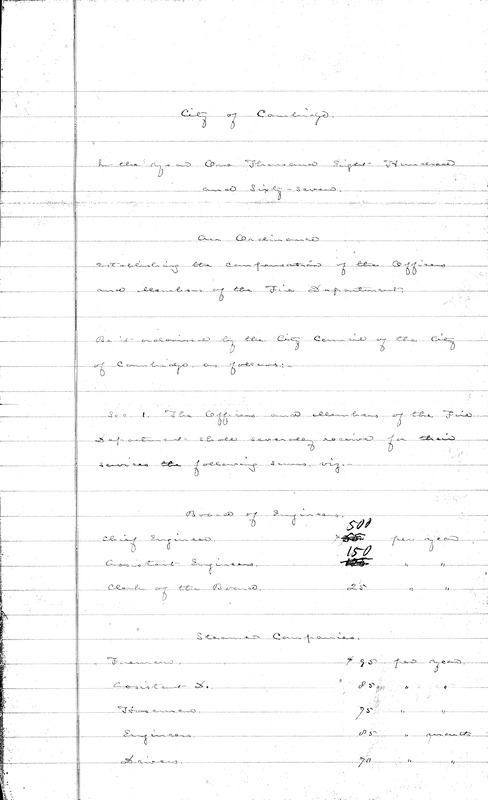 City of Cambridge.
In the year One Thousand Eight Hundred
and Sixty-seven.
An Ordinance
Establishing the compensation of the Officers
and Members of the Fire Department.
Be it ordained by the City Council of the City
of Cambridge, as follows:-
Sec. 1. The Officers and Members of the Fire
Department shall severally receive for their
services the following sums, viz.-
Board of Engineers.
500
Chief Engineer per year
150
Assistant Engineers. " "
Clerk of the Board. 25 " "
Steamer Companies.
Foreman. $95 per year.
Assistant D. 85 " "
Hosemen. 75 " "
Engineers. 85 " month
Drivers. 70 " "